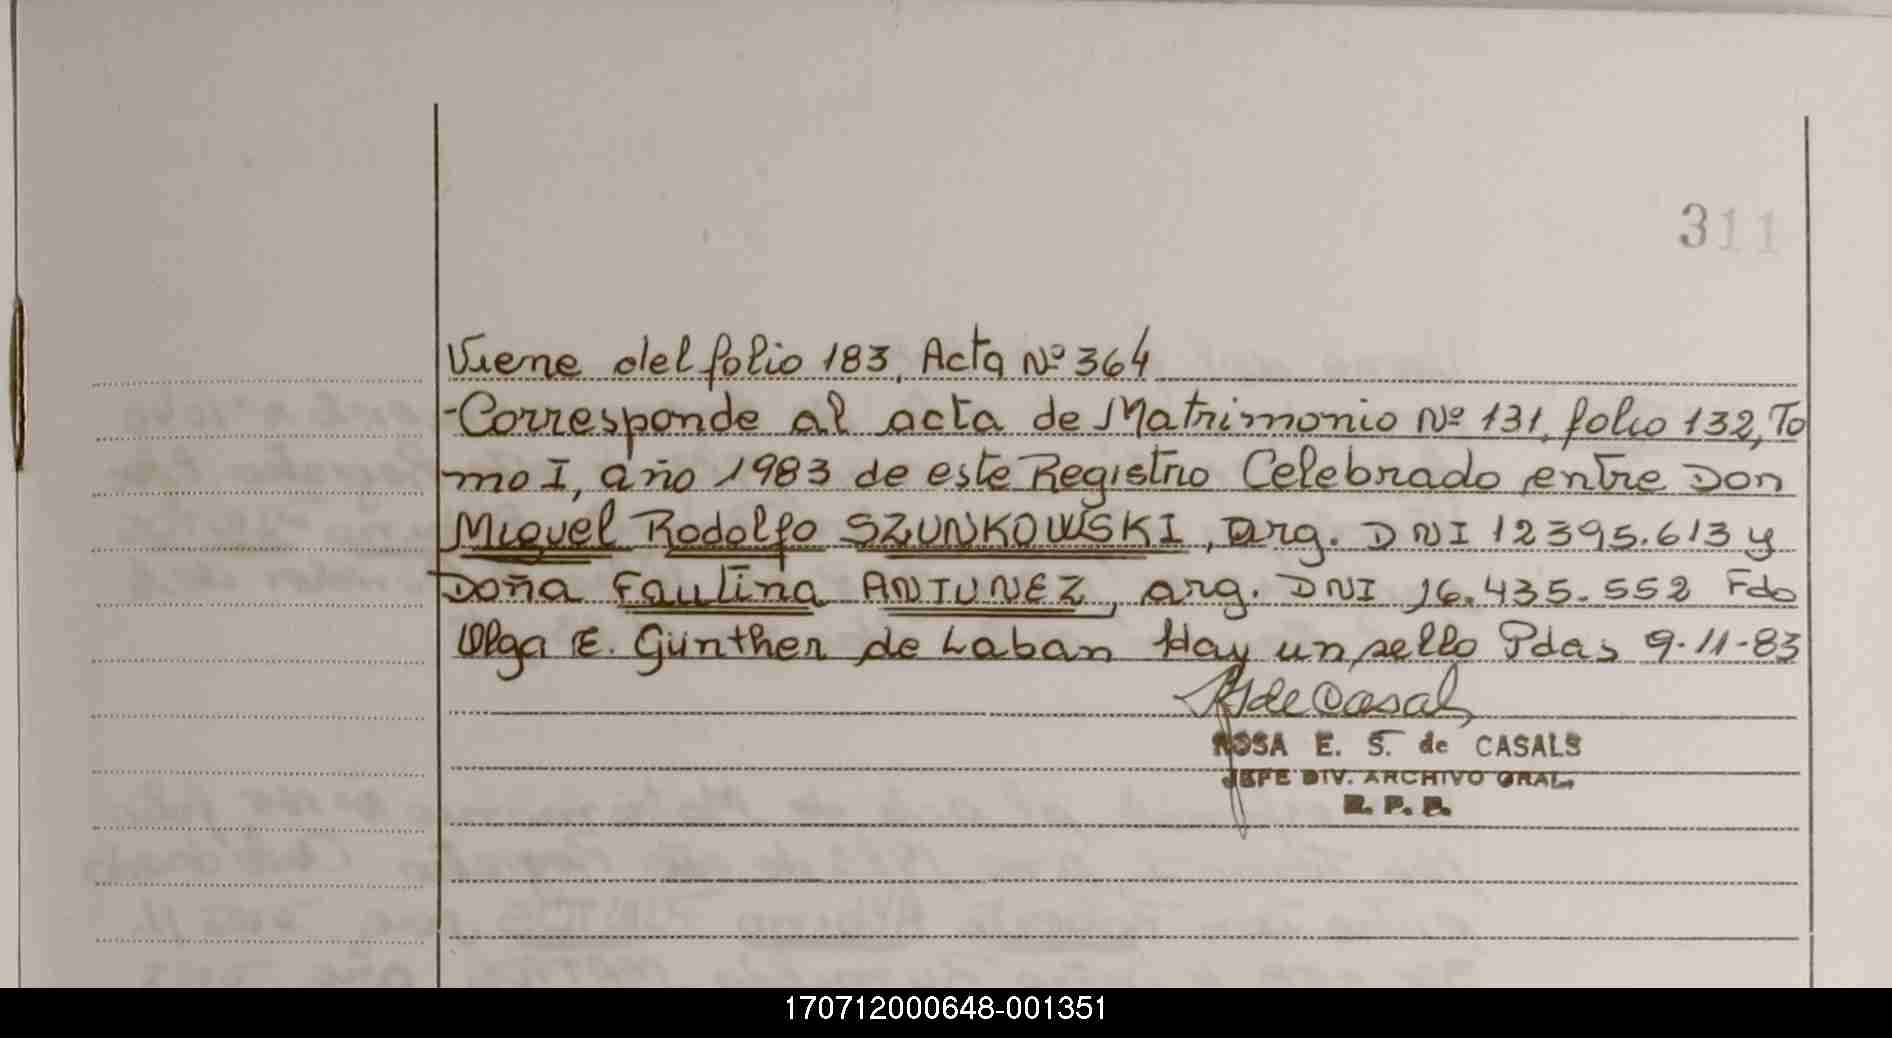 311
Viene del folio 183, Acta Nº 364
-Corresponde al acta de Matrimonio Nº 131, folio 132, To
mo I, año 1983 de este Registro Celebrado entre Don
Miguel Rodolfo SZUNKOWSKI, arg. DNI 12395.613 y
Doña Faulina ANTUNEZ, arg. DNI 16.435.552 Fdo
Olga E. Günther de Laban Hay un sello Pdas 9-11-83
de Casals
ROSA E. S. de CASALS
JEFE DIV. ARCHIVO GRAL.
R. P. P.
170712000648-001351